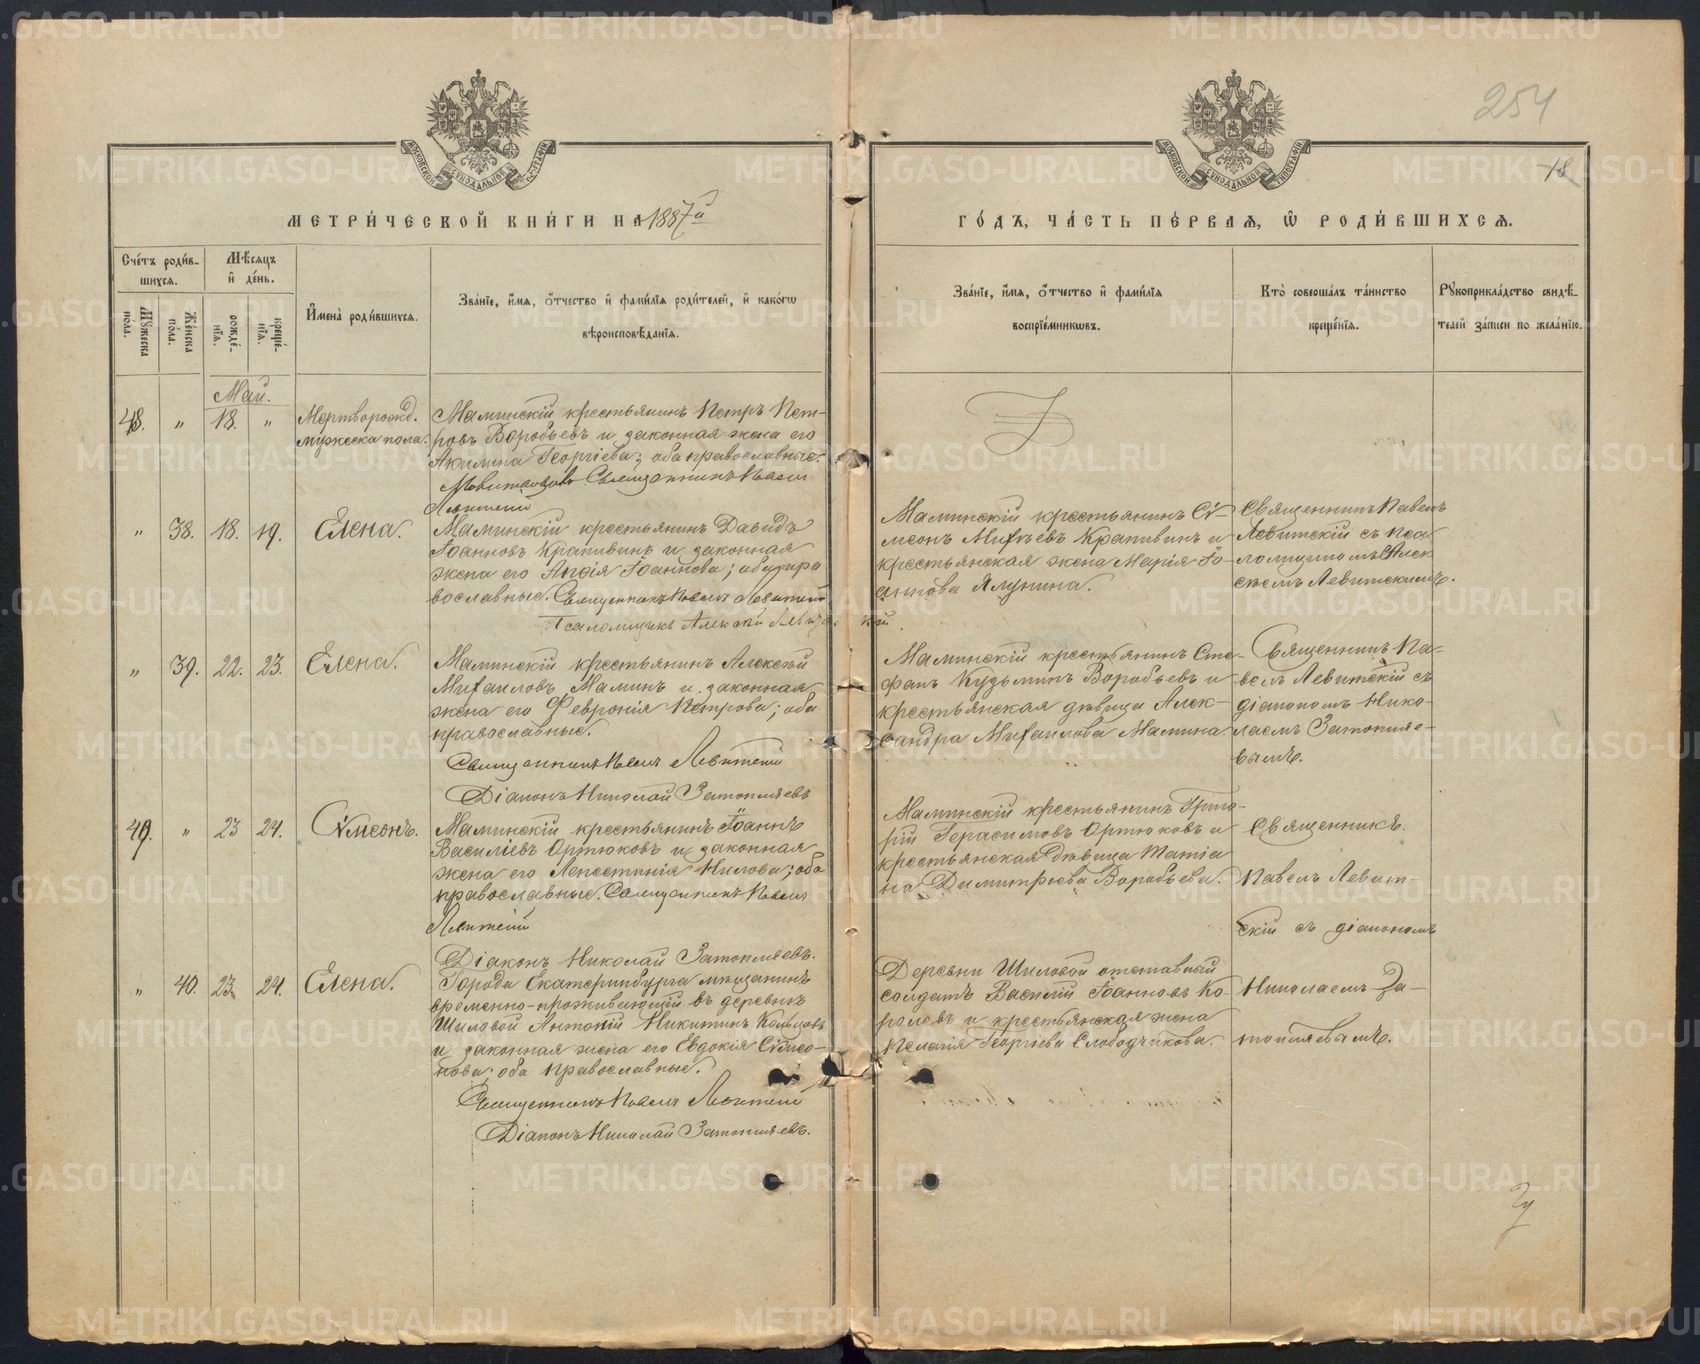 254
18
МЕТРИ́ЧЕСКОЙ КНИ́ГИ НА 1887й
ГО́ДЪ, ЧА́СТЬ ПЕ́РВАЯ, Ѡ РОДИ́ВШИХСЯ.
Сче́тъ роди́вшихся.
Мѣ́сяцъ и҆ де́нь.
Мꙋжеска по́ла.
Же́нска по́ла.
рожде́нїя.
креще́нїя.
И҆мена̀ роди́вшихся.
Зва́нїе, и҆́мя, ѻ҆́тчество и҆ фами́лїя роди́телей, и҆ како́гѡ
вѣроисповѣ́данїя.
Зва́нїе, и҆́мя, ѻ҆́тчество и҆ фами́лїя
воспрїе́мникѡвъ.
Кто̀ соверша́лъ та́инство
креще́нїя.
Рꙋкоприкла́дство свидѣ́-
телей за́писи по жела́нїю.
Май.
48. " 18. " Мертворожд.
мужеска пола.
Маминскій крестьянинъ Петръ Пет-
ровъ Воробьевъ и законная жена его
Акилина Георгіева; оба православные.
Священникъ Павелъ
Левитскій
" 38. 18. 19. Елена.
Маминскій крестьянинъ Давидъ
Іоанновъ Крапивинъ и законная
жена его Анѳія Іоаннова; оба пра
вославные. Священникъ Павелъ Левитскій
Псаломщикъ Алексѣй Левитскій
Маминскій крестьянинъ Сѵ-
меонъ Михѣевъ Крапивинъ и
крестьянская жена Марія Іо-
аннова Ялунина.
Священникъ Павелъ
Левитскій съ пса
ломщикомъ Алек
сѣемъ Левитскимъ.
" 39. 22. 23. Елена.
Маминскій крестьянинъ Алексѣй
Михаиловъ Маминъ и законная
жена его Февронія Петрова; оба
православные.
Священникъ Павелъ Левитскій
Діаконъ Николай Затопляевъ
Маминскій крестьянинъ Сте-
фанъ Кузьминъ Воробьевъ и
крестьянская дѣвица Алек-
сандра Михаилова Мамина
Священникъ Па-
велъ Левитскій съ
діакономъ Нико-
лаемъ Затопляе-
вымъ.
49. " 23 24. Сѵмеонъ.
Маминскій крестьянинъ Іоаннъ
Василіевъ Ортюковъ и законная
жена его Лепестинія Нилова; оба
православные. Священникъ Павелъ
Левитскій
Діаконъ Николай Затопляевъ.
Маминскій крестьянинъ Григо-
рій Герасимовъ Ортюковъ и
крестьянская дѣвица Татіа
на Димитріева Воробьева.
Священникъ
Павелъ Левит-
скій съ діакономъ
Николаемъ За-
топляевымъ.
" 40. 23. 24. Елена.
Города Екатеринбурга мѣщанинъ
временно-проживающій въ деревнѣ
Шиловой Антоній Никитинъ Кольцовъ
и законная жена его Евдокія Сѵмео-
нова; оба православные.
Священникъ Павелъ Левитскій
Діаконъ Николай Затопляевъ.
Деревни Шиловой отставный
солдатъ Василій Іоанновъ Ко-
ролевъ и крестьянская жена
Пелагія Георгіева Слободчикова.